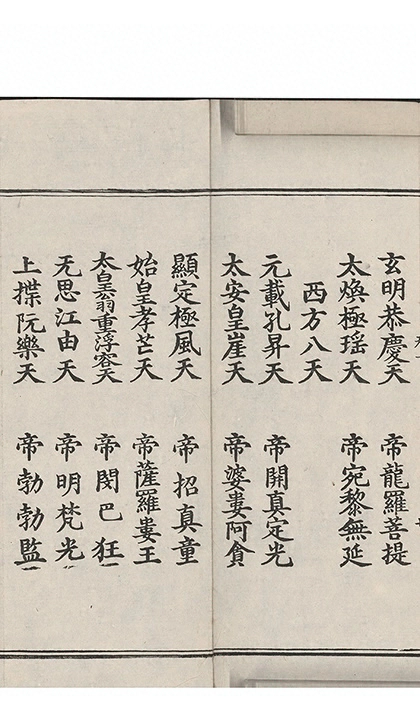 玄明恭慶天 帝龍羅菩提
太煥極瑶天 帝宛黎無延
西方八天
元載孔昇天 帝開真定光
太安皇崖天 帝婆婁阿貪
顯定極風天 帝招真童
始皇孝芒天 帝薩羅婁王
太皇翁重浮容天 帝閔巴狂
无思江由天 帝明梵光
上揲阮樂天 帝勃勃監